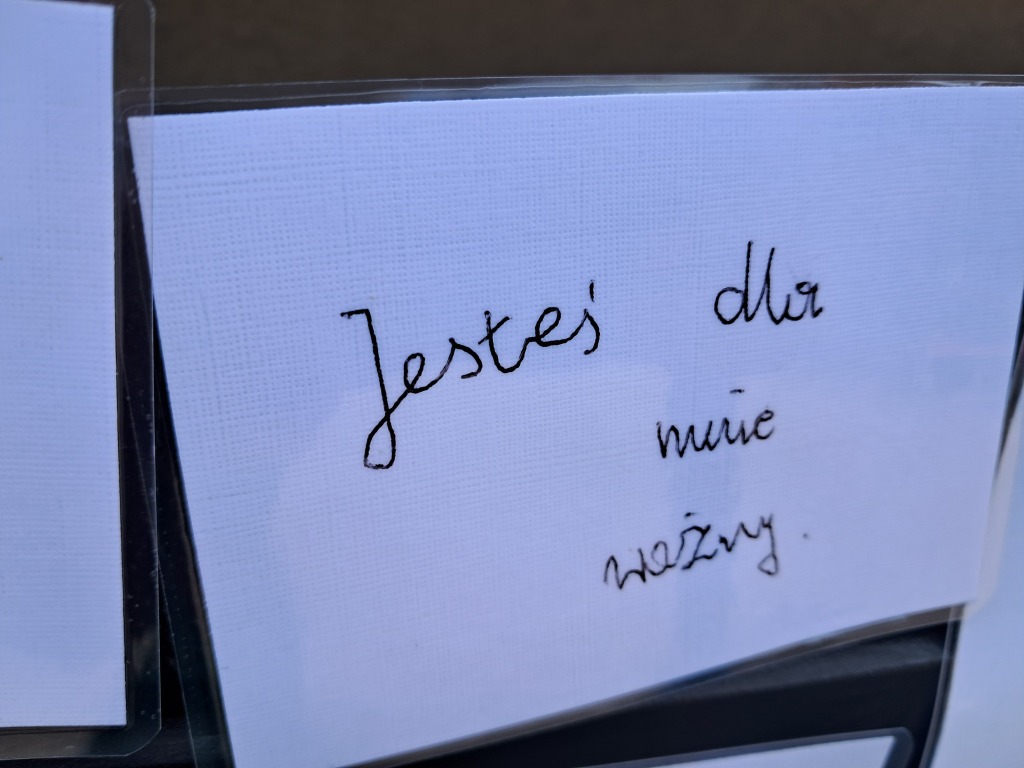 Jesteś dla
mnie
ważny.